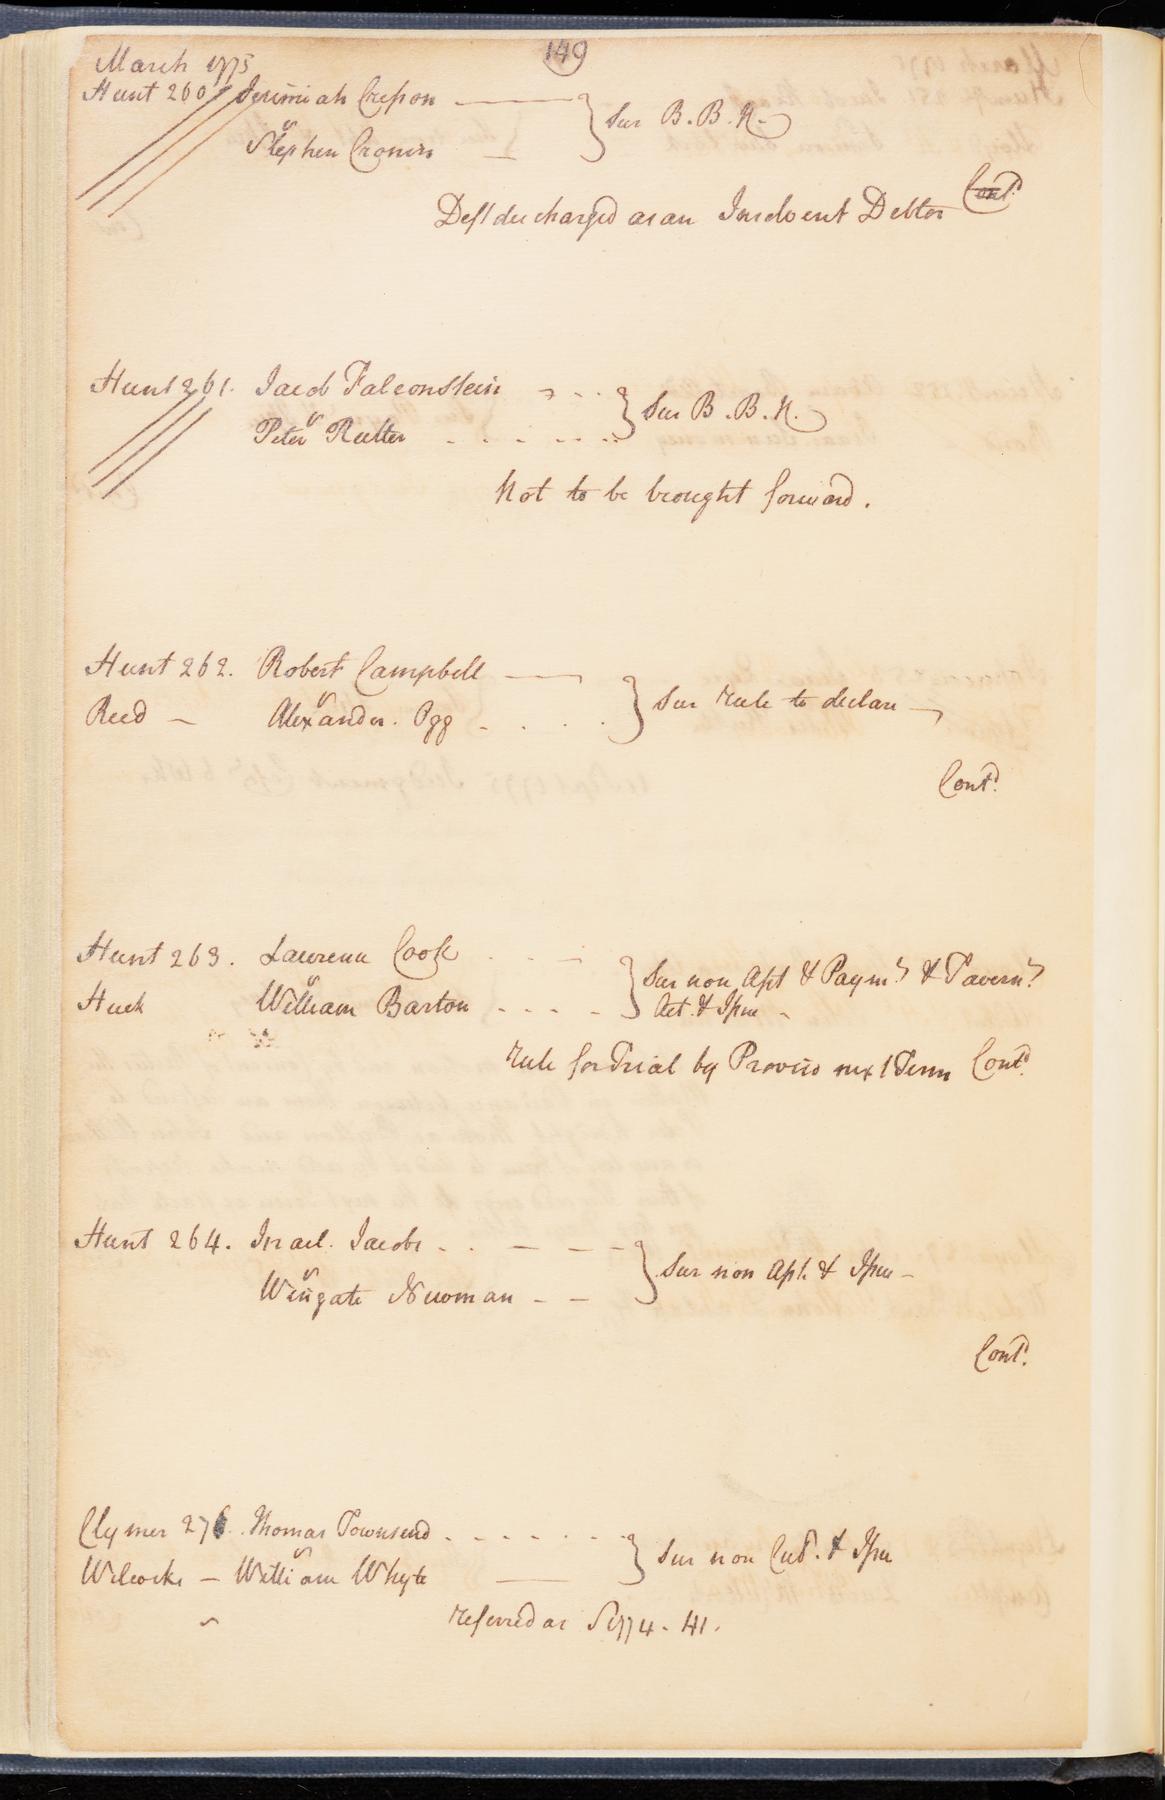 149
March 1775
Hunt 260 Jerimiah Crepon
v
Stephen Cronin
} Sur B. B. N.
Deft discharged as an Insolvent Debtor Cont.d
Hunt 261. Jacob Falconstein
v
Peter Rutter
} Sur B. B. N.
Not to be brought forward.
Hunt 262. Robert Campbell
v
Reed — Alexander. Ogg
} Sur rule to declare
Cont.d
Hunt 263. Lawrence Cook
v
Huck William Barton
} Sur non Apt & Paym.t & Tavern
Act. & Issue
rule for Trial by Proviso next Term Cont.d
Hunt 264. Israel. Jacobs
v
Wingate Newman
} Sur non Apt. & Issue
Cont.d
Clymer 276. Thomas Townsend
v
Wilcocks — William Whyte
} Sur non Cul. & Issue
referred as S 1774. 141.